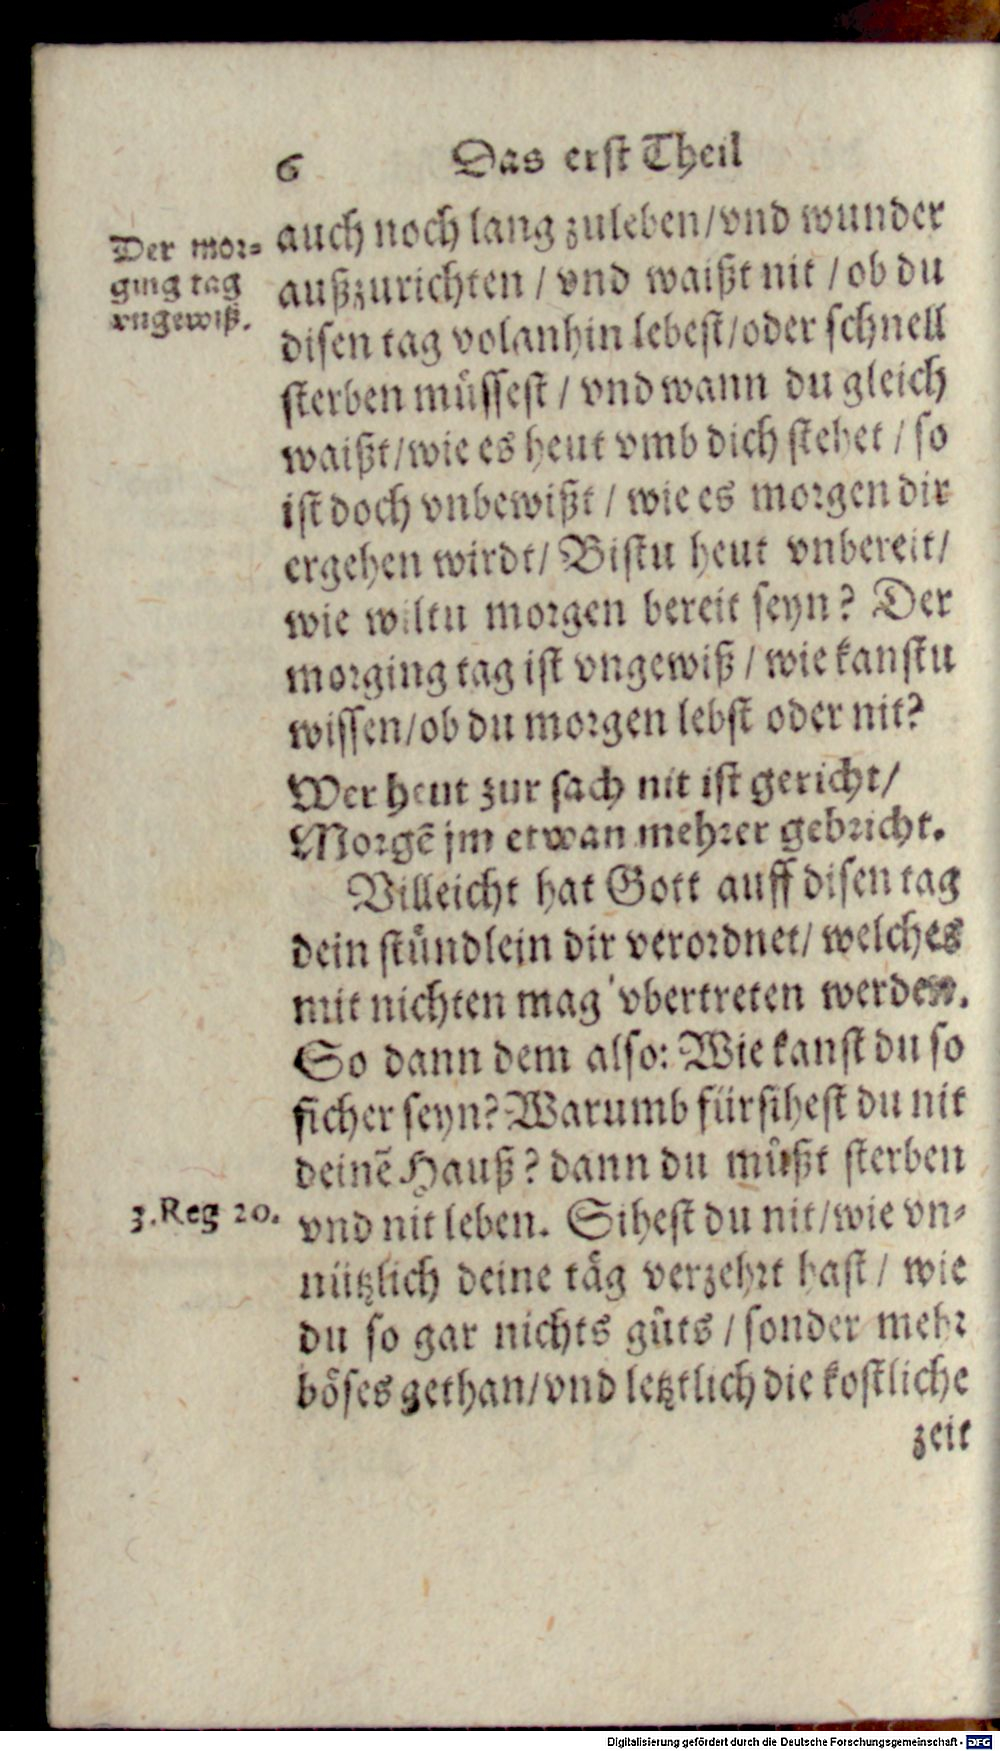 6 Das erst Theil
Der mor-
ging tag
vngewiß.
auch noch lang zuleben/vnd wunder
außzurichten / vnd waißt nit / ob du
disen tag volanhin lebest/oder schnell
sterben müssest / vnd wann du gleich
waißt/wie es heut vmb dich stehet / so
ist doch vnbewißt / wie es morgen dir
ergehen wirdt/ Bistu heut vnbereit/
wie wiltu morgen bereit seyn? Der
morging tag ist vngewiß / wie kanstu
wissen/ob du morgen lebst oder nit?
Wer heut zur sach nit ist gericht/
Morgē jm etwan mehrer gebricht.
Villeicht hat Gott auff disen tag
dein stündlein dir verordnet/ welches
mit nichten mag vbertreten werden.
So dann dem also: Wie kanst du so
sicher seyn? Warumb fürsihest du nit
deinē Hauß? dann du mußt sterben
3.Reg 20.
vnd nit leben. Sihest du nit/wie vn-
nützlich deine täg verzehrt hast / wie
du so gar nichts guts / sonder mehr
böses gethan/vnd letztlich die kostliche
zeit
Digitalisierung gefördert durch die Deutsche Forschungsgemeinschaft - DFG